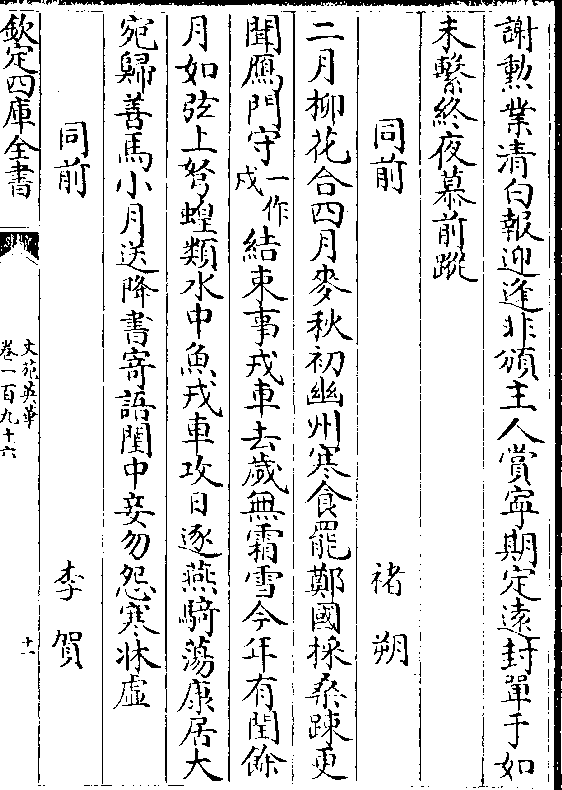 謝勲業清白報迎逢非頒主人賞寧期定遠封單于如
未繫終夜慕前蹤
同前 褚朔
二月柳花合四月麥秋初幽州寒食罷鄭國採桑踈更
聞鴈門守一作戍結束事戎車去歲無霜雪今年有閏餘
月如弦上弩蝗類水中魚戎車攻日逐燕騎蕩康居大
宛歸善馬小月送降書寄語閨中妾勿怨寒牀虛
同前 李賀
欽定四庫全書
文苑英華
卷一百九十六
十一